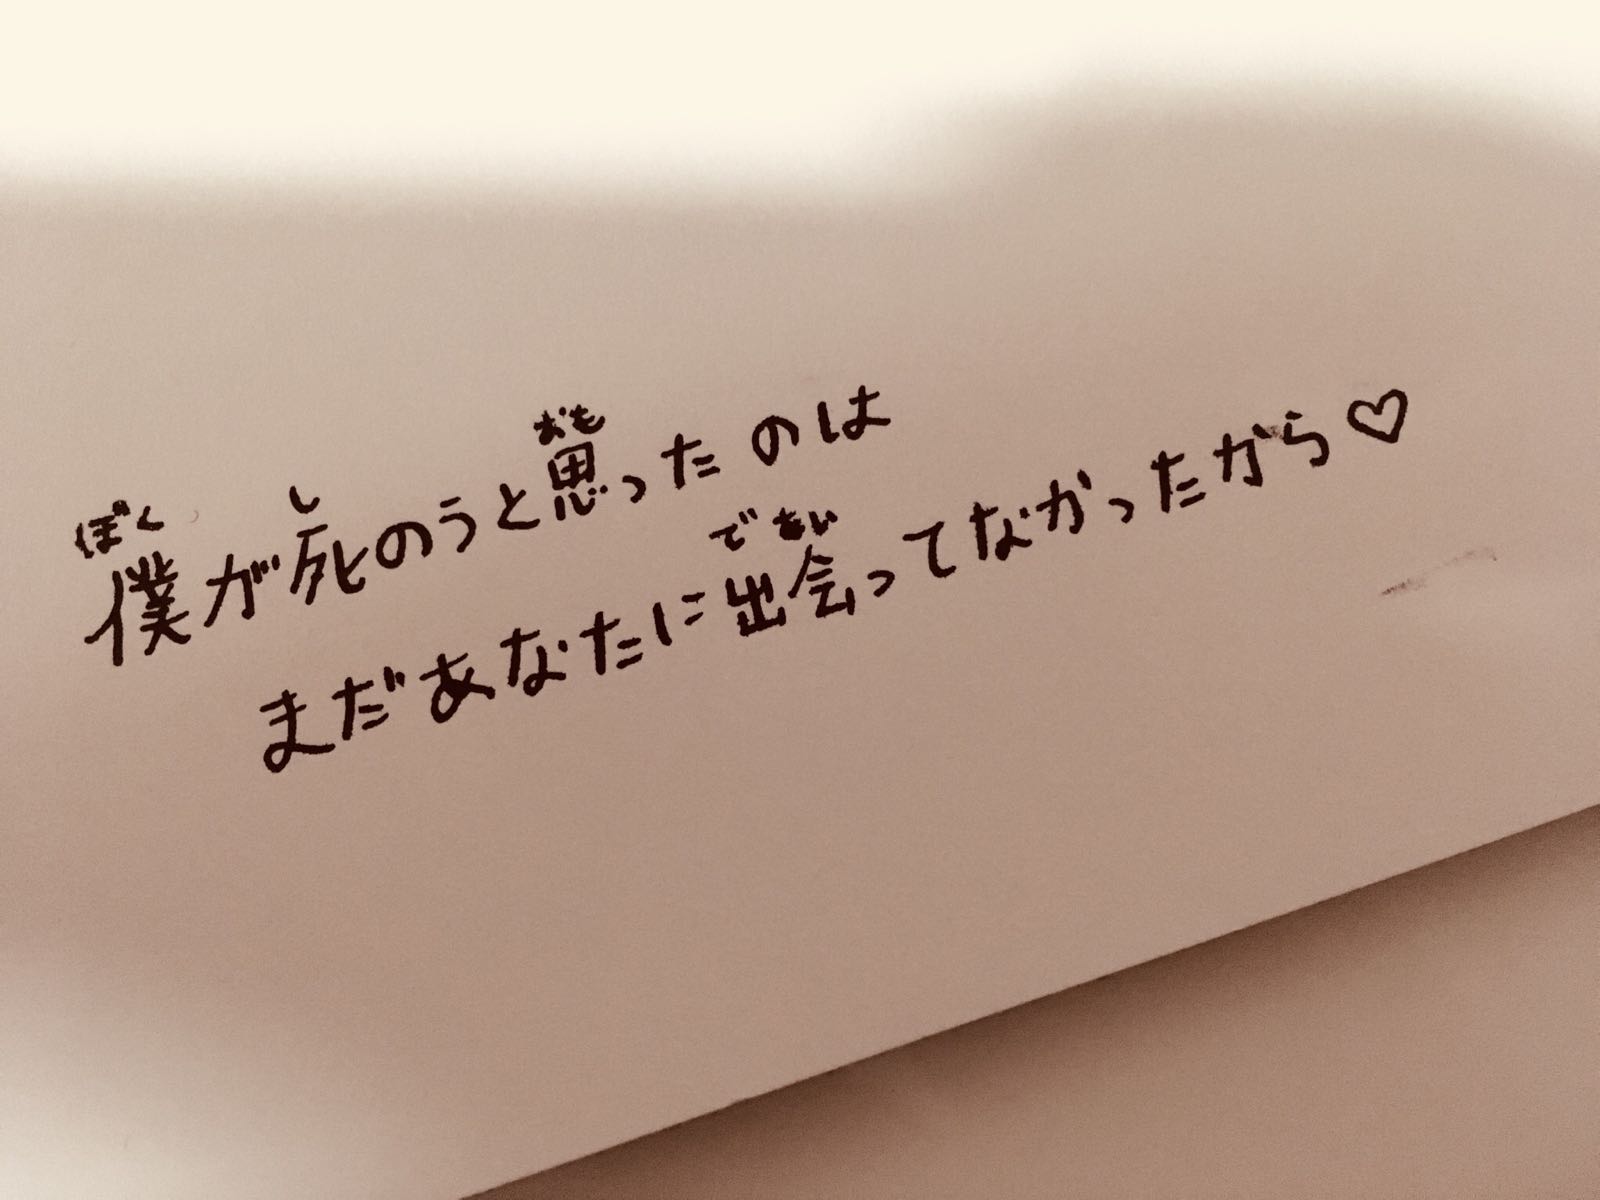 ぼく し おも
僕が死のうと思ったのは
であい
まだあなたに出会ってなかったから♡